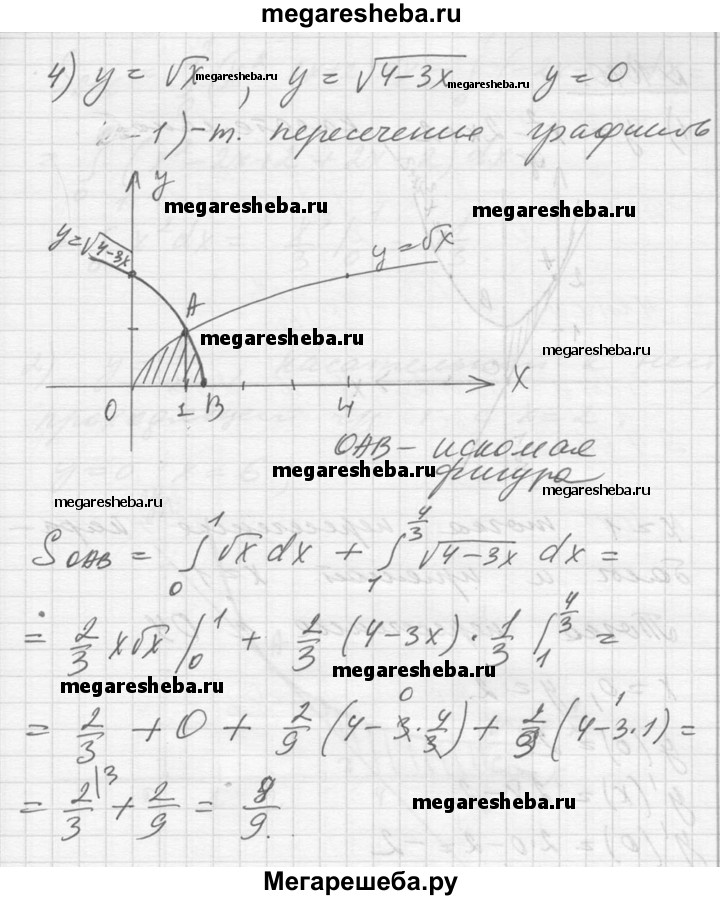 megaresheba.ru
4) y = √x, y = √4-3x y = 0
megaresheba.ru megaresheba.ru
-1) - т. пересечение графиков
y
megaresheba.ru megaresheba.ru
y=√4-3x
y=√x
A
megaresheba.ru
megaresheba.ru
x
0 1 B 4
OAB - искомая
megaresheba.ru
фигура
megaresheba.ru megaresheba.ru
S OAB = ∫₀¹ √x dx + ∫₁^(4/3) √4-3x dx =
= 2/3 x√x |₀¹ + 2/3 (4-3x) · 1/3 |₁^(4/3) =
megaresheba.ru
megaresheba.ru
= 2/3 + 0 + 2/9 (4 - 3 · 4/3) + 2/9 (4 - 3 · 1) =
0 1
= 2/3 |3 + 2/9 = 8/9.
megaresheba.ru
Мегарешеба.ру